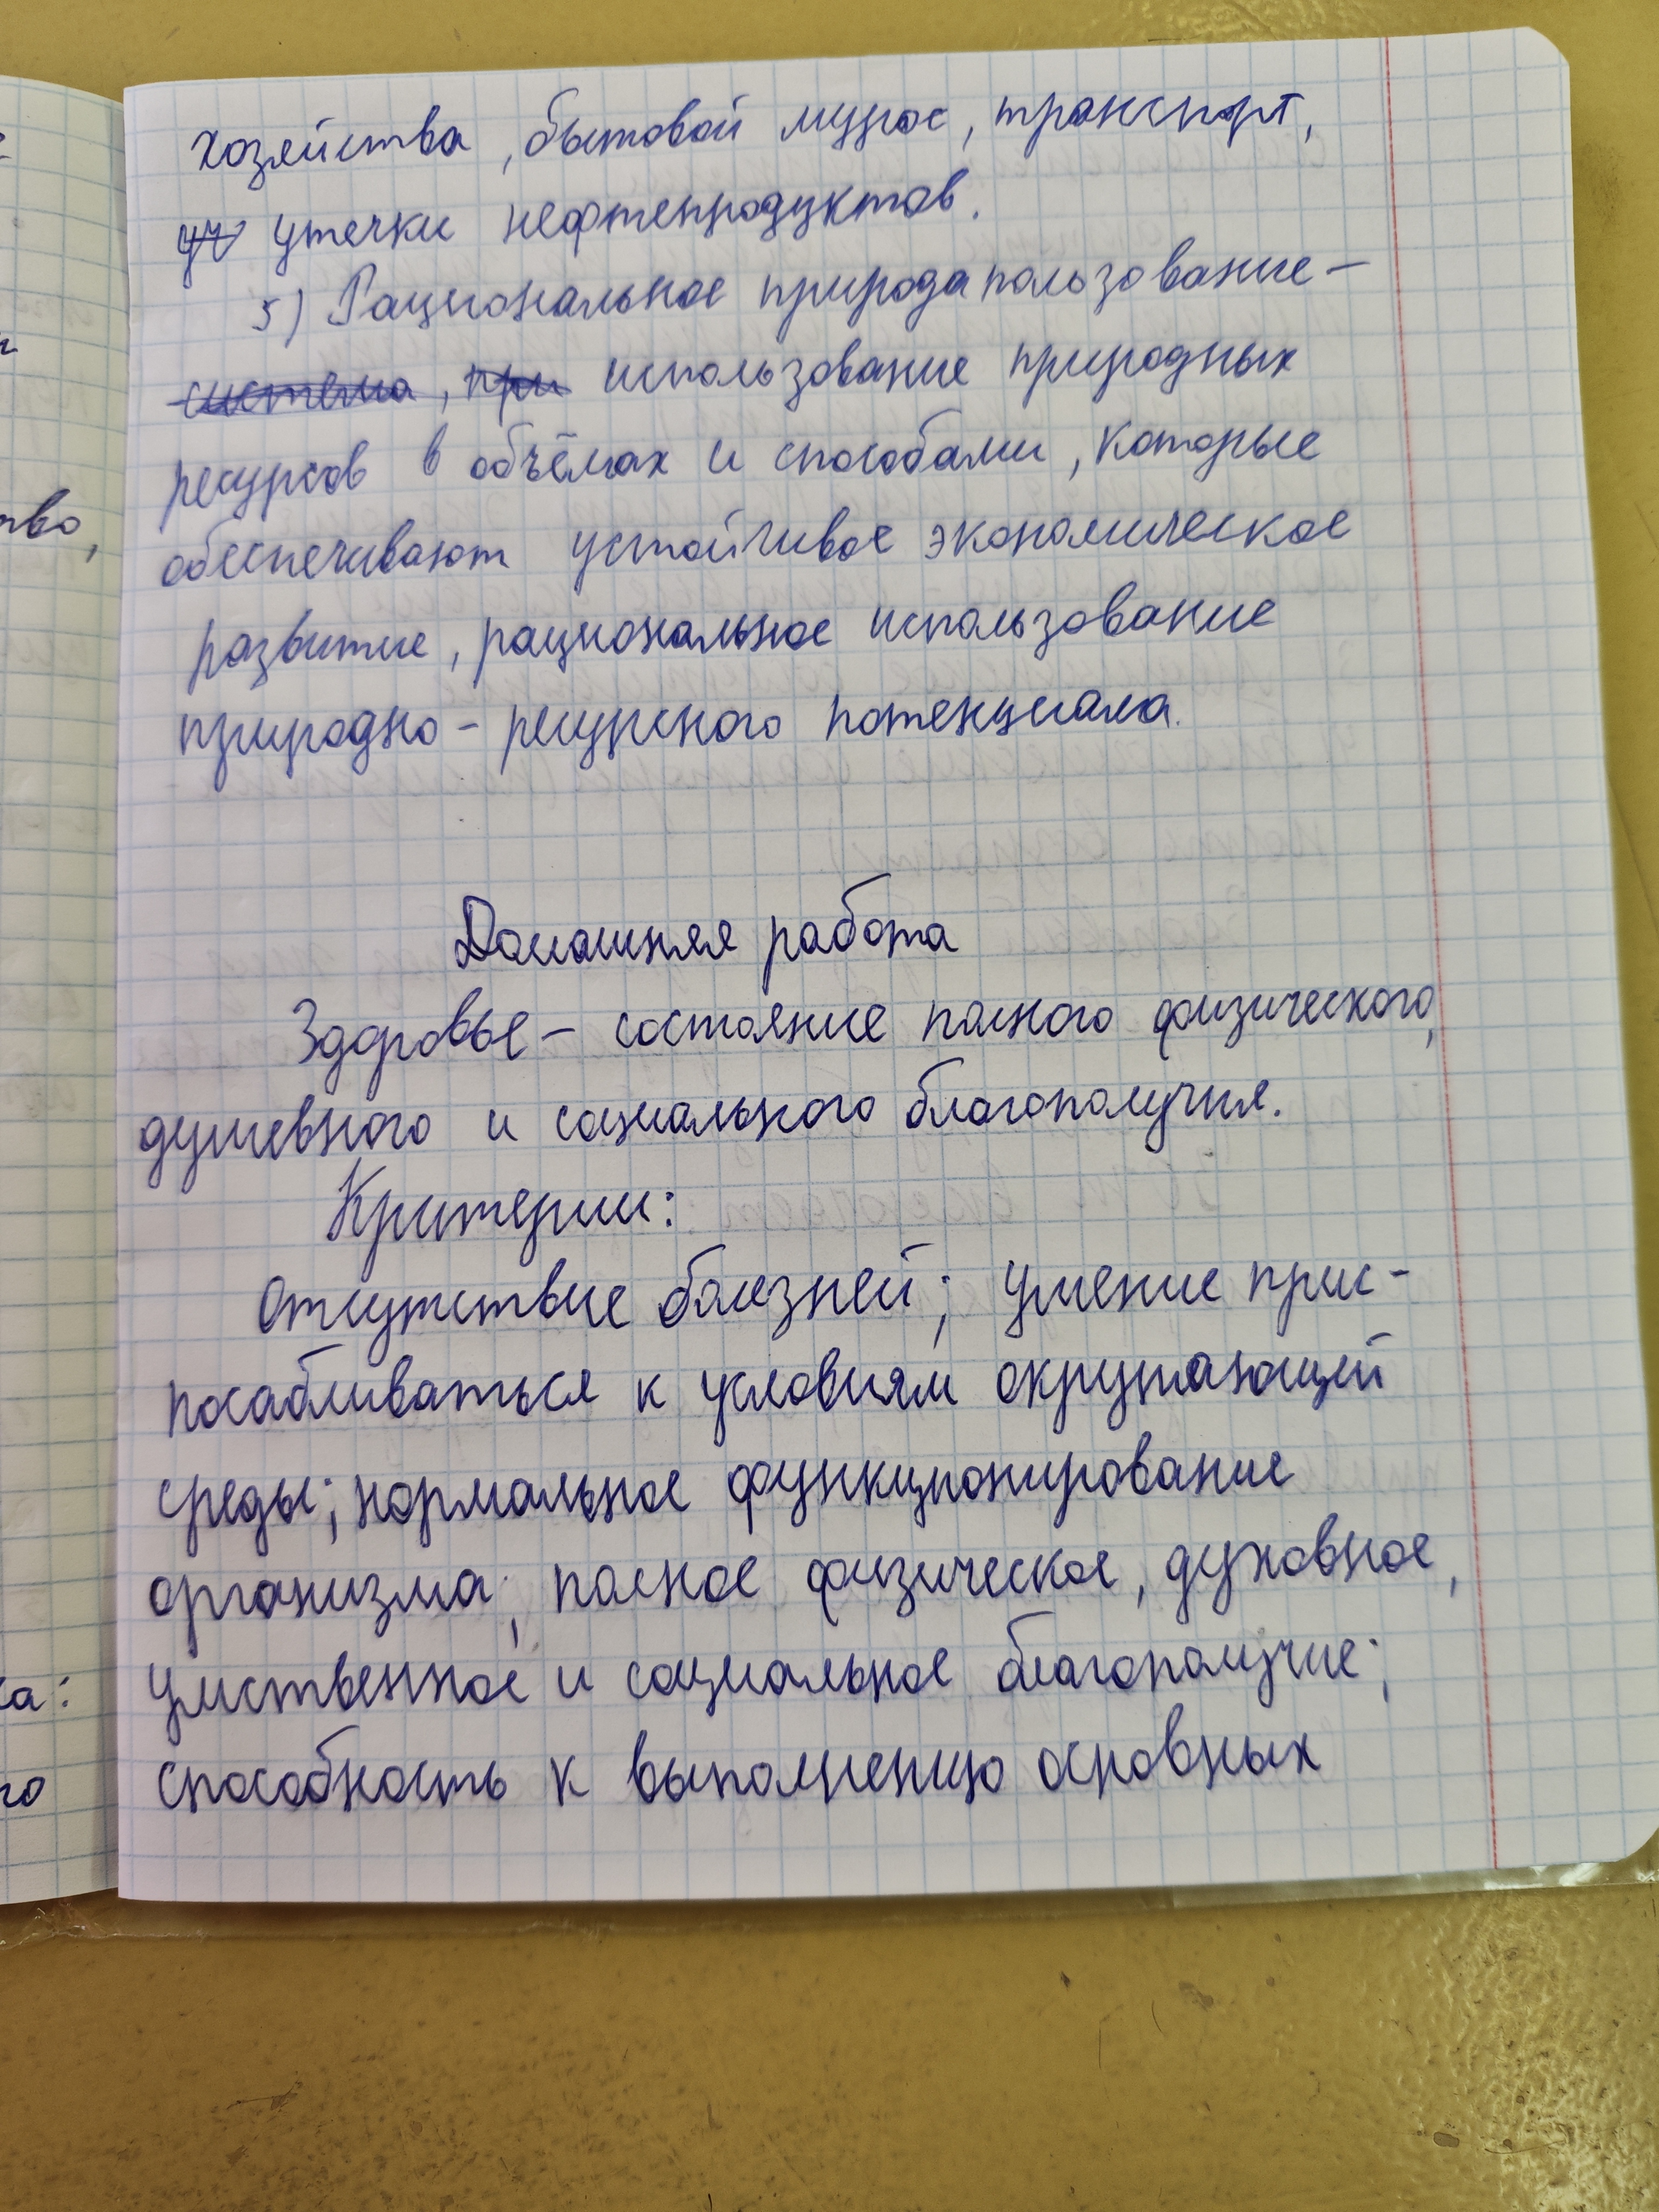 хозяйства, бытовой мусос, транспорт,
утечки нефтепродуктов.
5) Рациональное природапользование –
система, при использование природных
ресурсов в объёмах и способами, которые
обеспечивают устойчивое экономическое
развитие, рациональное использование
природно - ресурсного потенциала.
Домашняя работа
Здоровье – состояние полного физического,
душевного и социального благополучия.
Критерии:
отсутствие болезней; умение прис-
посабливаться к условиям окружающей
среды; нормальное функционирование
организма; полное физическое, духовное,
умственное и социальное благополучие;
способность к выполнению основных
тво,
ка:
го